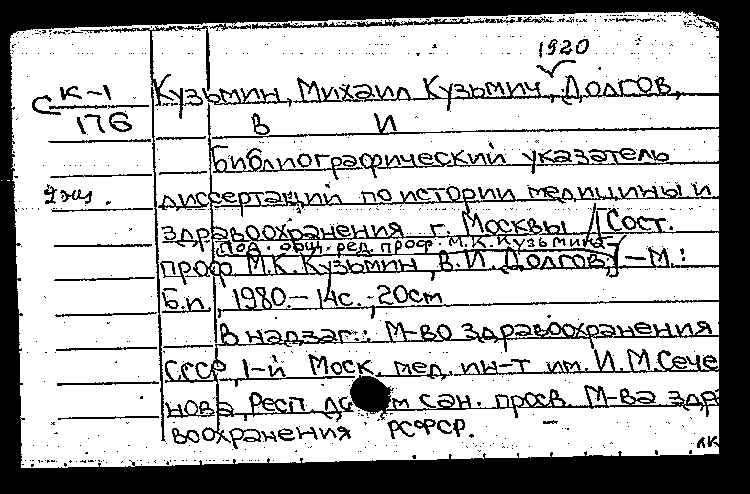 1920
С К-1 Кузьмин, Михаил Кузьмич, Долгов,
176 В И
Библиографический указатель
2 экз. диссертаций по истории медицины и
здравоохранения г. Москвы /[Сост.
под. общ. ред. проф. М.К. Кузьмина
проф М.К. Кузьмин, В.И. Долгов,] – М.:
Б.п., 1980.– 14с., 20cm
В надзаг.: М-во здравоохранения
СССР, 1-й Моск. мед. ин-т им. И.М.Сече
нова, Респ. сан. просв. М-ва здра
воохранения РСФСР. –